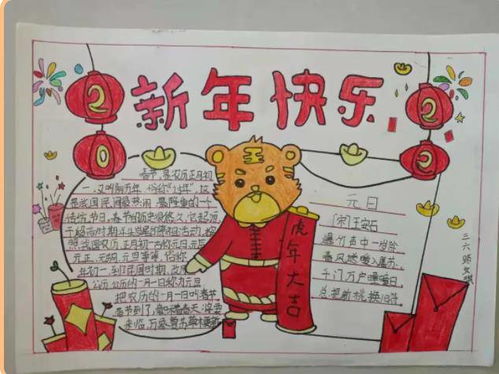 新年快乐
2
0
2
2
春节,是农历正月初
一,又叫阴历年,俗称"过年",这
是我国民间最热闹、最隆重的一个
传统节日。春节的历史很悠久,它起源
于殷商时期年头岁尾的祭神祭祖活动,按
照我国农历,正月初一古称元日、元辰、
元正、元朔、元旦等,俗称
年初一,到了民国时期,改用
公历,公历的一月一日称为元旦
把农历的一月一日叫春节
春节到了,意味着春天
来临,万象
虎年大吉
元日
[宋]王安石
爆竹声中一岁除
春风送暖入屠苏。
千门万户曈曈日,
总把新桃换旧符。
三六